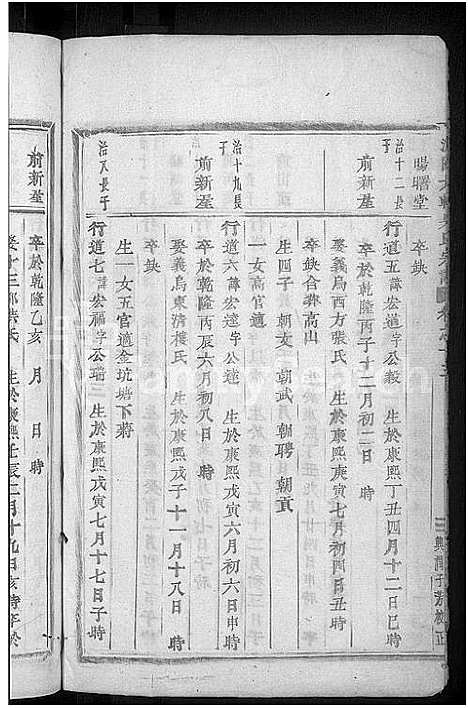 暘曙堂
卒缺
治十二長子
前新屋
行道五諱宏道字公毅 生於康熙丁丑四月十二日巳時
卒於乾隆丙子十二月初二日 時
娶義烏西方張氏 生於康熙庚寅七月初四日丑時
卒缺合葬高山
生四子 朝女 朝武 朝聘 朝貢
一女高宦
治十九長子
前新屋
行道六諱宏遠字公達 生於康熙戊寅六月初六日申時
卒於乾隆丙辰六月初八日 時
娶義烏東清樓氏 生於康熙戊子十一月十八日 時
卒缺
生一女五官適金坑塘下蔣
治八長子
前新屋
行道七諱宏福字公瑞 生於康熙戊寅七月十七日子時
卒於乾隆乙亥 月 日 時